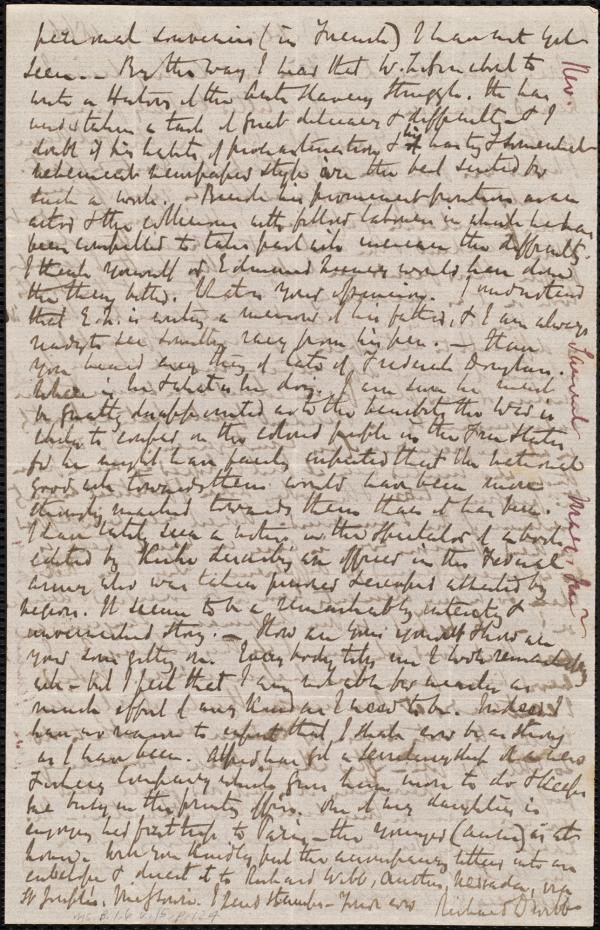 personal souvenirs (in French) I have not yet
seen. - By the way I hear that W. L. G. is about to
write a History of the Anti Slavery Struggle. He has
undertaken a task of great delicacy & difficulty - & I
doubt if his habits of procrastination & his hasty & somewhat
vehement newspaper style are the best suited for
such a work. - Beside his prominent position as an
actor & the collisions with fellow labourers in which he has
been compelled to take part will increase the difficulty.
I think yourself or Edmund Quincy would have done
the thing better. What is your opinion. I understand
that E. Q. is writing a memoir of his father, & I am always
ready to see something racy from his pen. - Have
you heard any thing of late of Frederick Douglass.
Where is he & what is he doing. I am sure he must
be greatly disappointed as to the benefits the War is
likely to confer on the colored people in the Free States
for he might have fairly expected that the national
good will towards them would have been more
strongly marked towards them than it has been.
I have lately seen a notice in the Spectator of a book
edited by describing an officer in the Federal
army who was taken prisoner & escaped assisted by
negroes. It seems to be a remarkably interesting &
story. - How are you yourself & how are
your sons getting on. Everybody tells me I look remarkably
well - but I feel that I am not able for nearly as
much effort of any kind as I used to be. Indeed I
have no reason to expect that I shall ever be as strong
as I have been. Alfred has got a secretaryship of a
Fishery Company which gives him more to do & keeps
me busy in the printing office. One of my daughters is
enjoying her first trip to Paris - the younger is at
home. Will you kindly put the accompanying letters into an
envelope & direct it to Richard Webb, Austin, Nevada, via
St Joseph's, Missouri. I send stamps - Yours ever Richard D Webb
Rev. Samuel May, Jr.
Ms. B.1.6 v.15, p.124